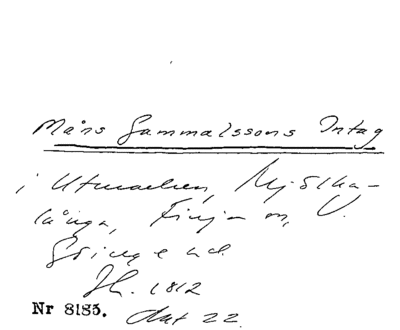 Måns Gammalssons Intag
i Utmarken, Mjölka-
långa, Finja sn, V.
Göinge hd.
Jh. 1812
Nr 8185. Akt 22